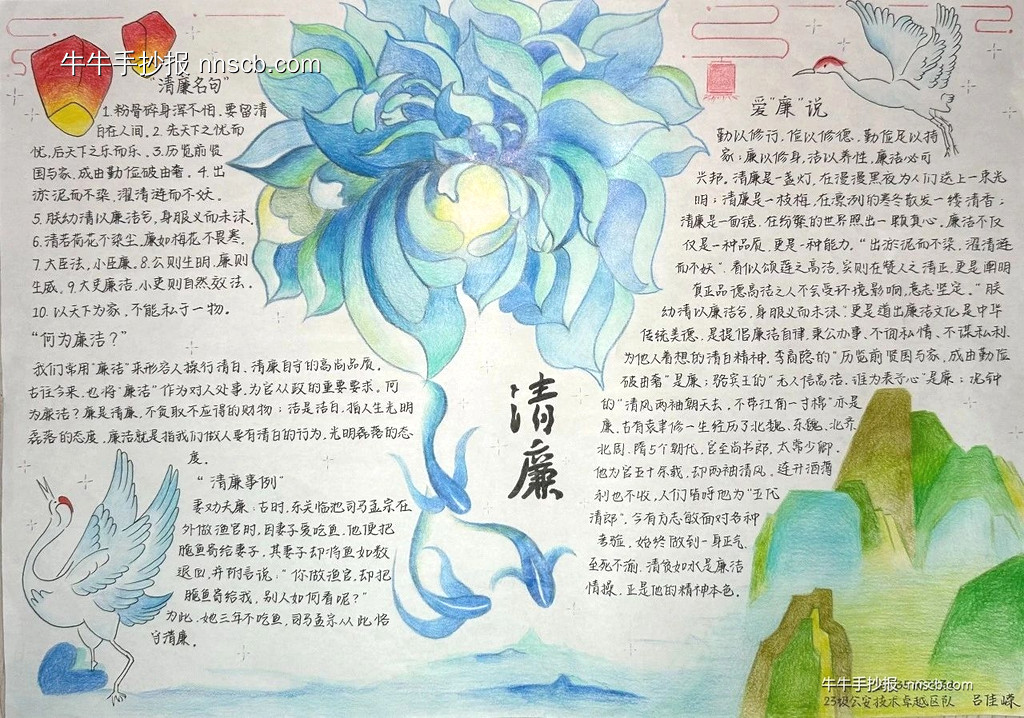 牛牛手抄报 nnscb.com
“清廉名句”
1.粉骨碎身浑不怕.要留清
白在人间.2.先天下之忧而
忧,后天下之乐而乐.3.历览前贤
国与家,成由勤俭破由奢.4.出
淤泥而不染,濯清涟而不妖.
5.朕幼清以廉洁兮,身服义而未沫.
6.清若荷花不染尘,廉如梅花不畏寒.
7.大臣法,小臣廉.8.公则生明,廉则
生威.9.大吏廉洁,小吏则自然效法.
10.以天下为家,不能私于一物.
“何为廉洁?”
我们常用“廉洁”来形容人操行清白、清廉自守的高尚品质,
古往今来,也将“廉洁”作为对人处事,为官从政的重要要求,何
为廉洁?廉是清廉,不贪取不应得的财物;洁是洁白,指人生光明
磊落的态度.廉洁就是指我们做人要有清白的行为、光明磊落的态
度.
“清廉事例”
妻劝夫廉:古时,东吴临池司马孟宗在
外做渔官时,因妻子爱吃鱼,他便把
腌鱼寄给妻子,其妻子却将鱼如数
退回,并附言说:“你做渔官,却把
腌鱼寄给我,别人如何看呢?”
为此,她三年不吃鱼,司马孟宗从此恪
守清廉.
清
廉
爱“廉”说
勤以修行,俭以修德,勤俭足以持
家;廉以修身,洁以养性,廉洁必可
兴邦.清廉是一盏灯,在漫漫黑夜为人们送上一束光
明;清廉是一枝梅,在凛冽的寒冬散发一缕清香;
清廉是一面镜,在纷繁的世界照出一颗真心.廉洁不仅
仅是一种品质,更是一种能力.“出淤泥而不染,濯清涟
而不妖”.看似颂莲之高洁,实则在赞人之清正,更是阐明
真正品德高洁之人不会受环境影响,意志坚定.“朕
幼清以廉洁兮,身服义而未沫.”更是道出廉洁文化是中华
传统美德,是提倡廉洁自律,秉公办事,不徇私情、不谋私利,
为他人着想的清白精神,李商隐的“历览前贤国与家,成由勤俭
破由奢”是廉;骆宾王的“无人信高洁,谁为表予心”是廉;况钟
的“清风两袖朝天去,不带江南一寸棉”亦是
廉.古有袁聿修一生经历了北魏、东魏、北齐
北周、隋5个朝代,官至尚书郎,太常少卿.
他为官五十余载,却两袖清风,连升酒薄
利也不收,人们皆呼他为“五代
清郎”.今有方志敏面对各种
考验,始终做到一身正气、
至死不渝.清贫如水是廉洁
情操,正是他的精神本色.
牛牛手抄报 nnscb.com
23级公安技术卓越区队 吕佳嵘